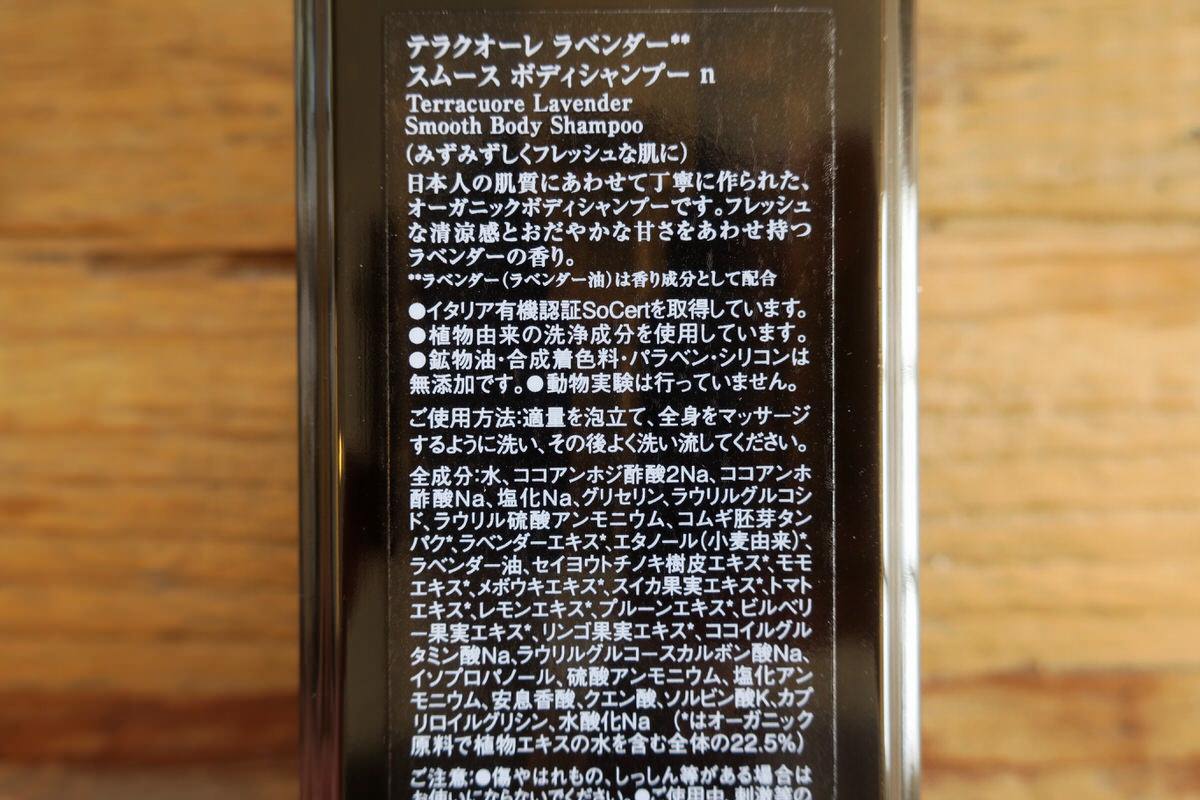 テラクオーレ ラベンダー**
スムース ボディシャンプー n
Terracuore Lavender
Smooth Body Shampoo
(みずみずしくフレッシュな肌に)
日本人の肌質にあわせて丁寧に作られた、
オーガニックボディシャンプーです。フレッシュ
な清涼感とおだやかな甘さをあわせ持つ
ラベンダーの香り。
**ラベンダー(ラベンダー油)は香り成分として配合
●イタリア有機認証SoCertを取得しています。
●植物由来の洗浄成分を使用しています。
●鉱物油・合成着色料・パラベン・シリコンは
無添加です。●動物実験は行っていません。
ご使用方法:適量を泡立て、全身をマッサージ
するように洗い、その後よく洗い流してください。
全成分:水、ココアンホジ酢酸2Na、ココアンホ
酢酸Na、塩化Na、グリセリン、ラウリルグルコシ
ド、ラウリル硫酸アンモニウム、コムギ胚芽タン
パク*、ラベンダーエキス*、エタノール(小麦由来)*、
ラベンダー油、セイヨウトチノキ樹皮エキス*、モモ
エキス*、メボウキエキス*、スイカ果実エキス*、トマト
エキス*、レモンエキス*、プルーンエキス*、ビルベリ
ー果実エキス*、リンゴ果実エキス*、ココイルグル
タミン酸Na、ラウリルグルコースカルボン酸Na、
イソプロパノール、硫酸アンモニウム、塩化アン
モニウム、安息香酸、クエン酸、ソルビン酸K、カプ
リロイルグリシン、水酸化Na (*はオーガニック
原料で植物エキスの水を含む全体の22.5%)
ご注意:●傷やはれもの、しっしん等がある場合は
お使いにならないでください。●ご使用中、刺激等の